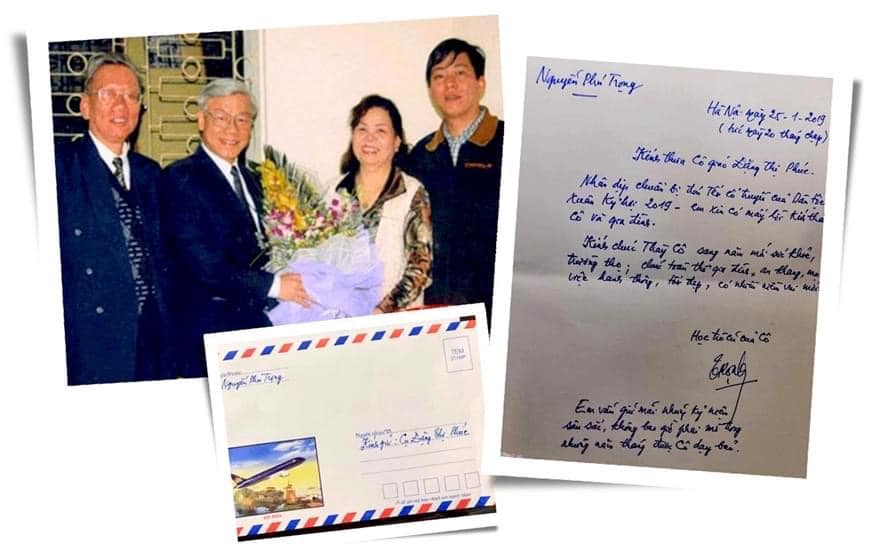 Nguyễn Phú Trọng
Hà Nội ngày 25-1-2019
(tức ngày 20 tháng chạp)
Kính thưa Cô giáo Đặng Thị Phúc.
Nhân dịp chuẩn bị đón Tết cổ truyền của Dân tộc
Xuân Kỷ hợi 2019 - em xin có mấy lời kính thăm
Cô và gia đình.
Kính chúc Thầy Cô sang năm mới sức khỏe,
trường thọ; chúc toàn thể gia đình an khang, mọi
việc hanh thông, tốt đẹp, có nhiều niềm vui mới
Học trò cũ của Cô
Trọng
Em vẫn giữ mãi những kỷ niệm
sâu sắc, không bao giờ phai mờ trong
những năm tháng được Cô dạy bảo.
TEM
Nguyễn Phú Trọng
Kính gửi: Cụ Đặng Thị Phúc